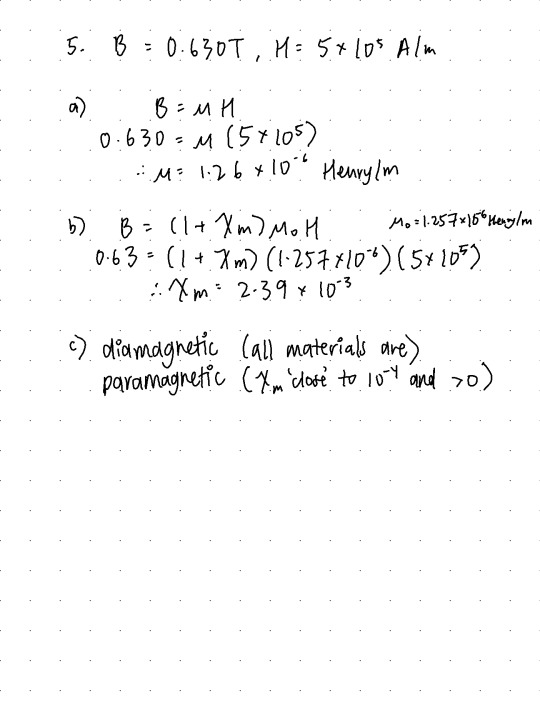 5. B = 0.630T, H = 5 × 10⁵ A/m
a) B = μ H
0.630 = μ (5 × 10⁵)
∴ μ = 1.26 × 10⁻⁶ Henry/m
b) B = (1 + χm) μ₀ H μ₀ = 1.257 × 10⁻⁶ Henry/m
0.63 = (1 + χm) (1.257 × 10⁻⁶) (5 × 10⁵)
∴ χm = 2.39 × 10⁻³
c) diamagnetic (all materials are)
paramagnetic (χm 'close' to 10⁻⁴ and >0)